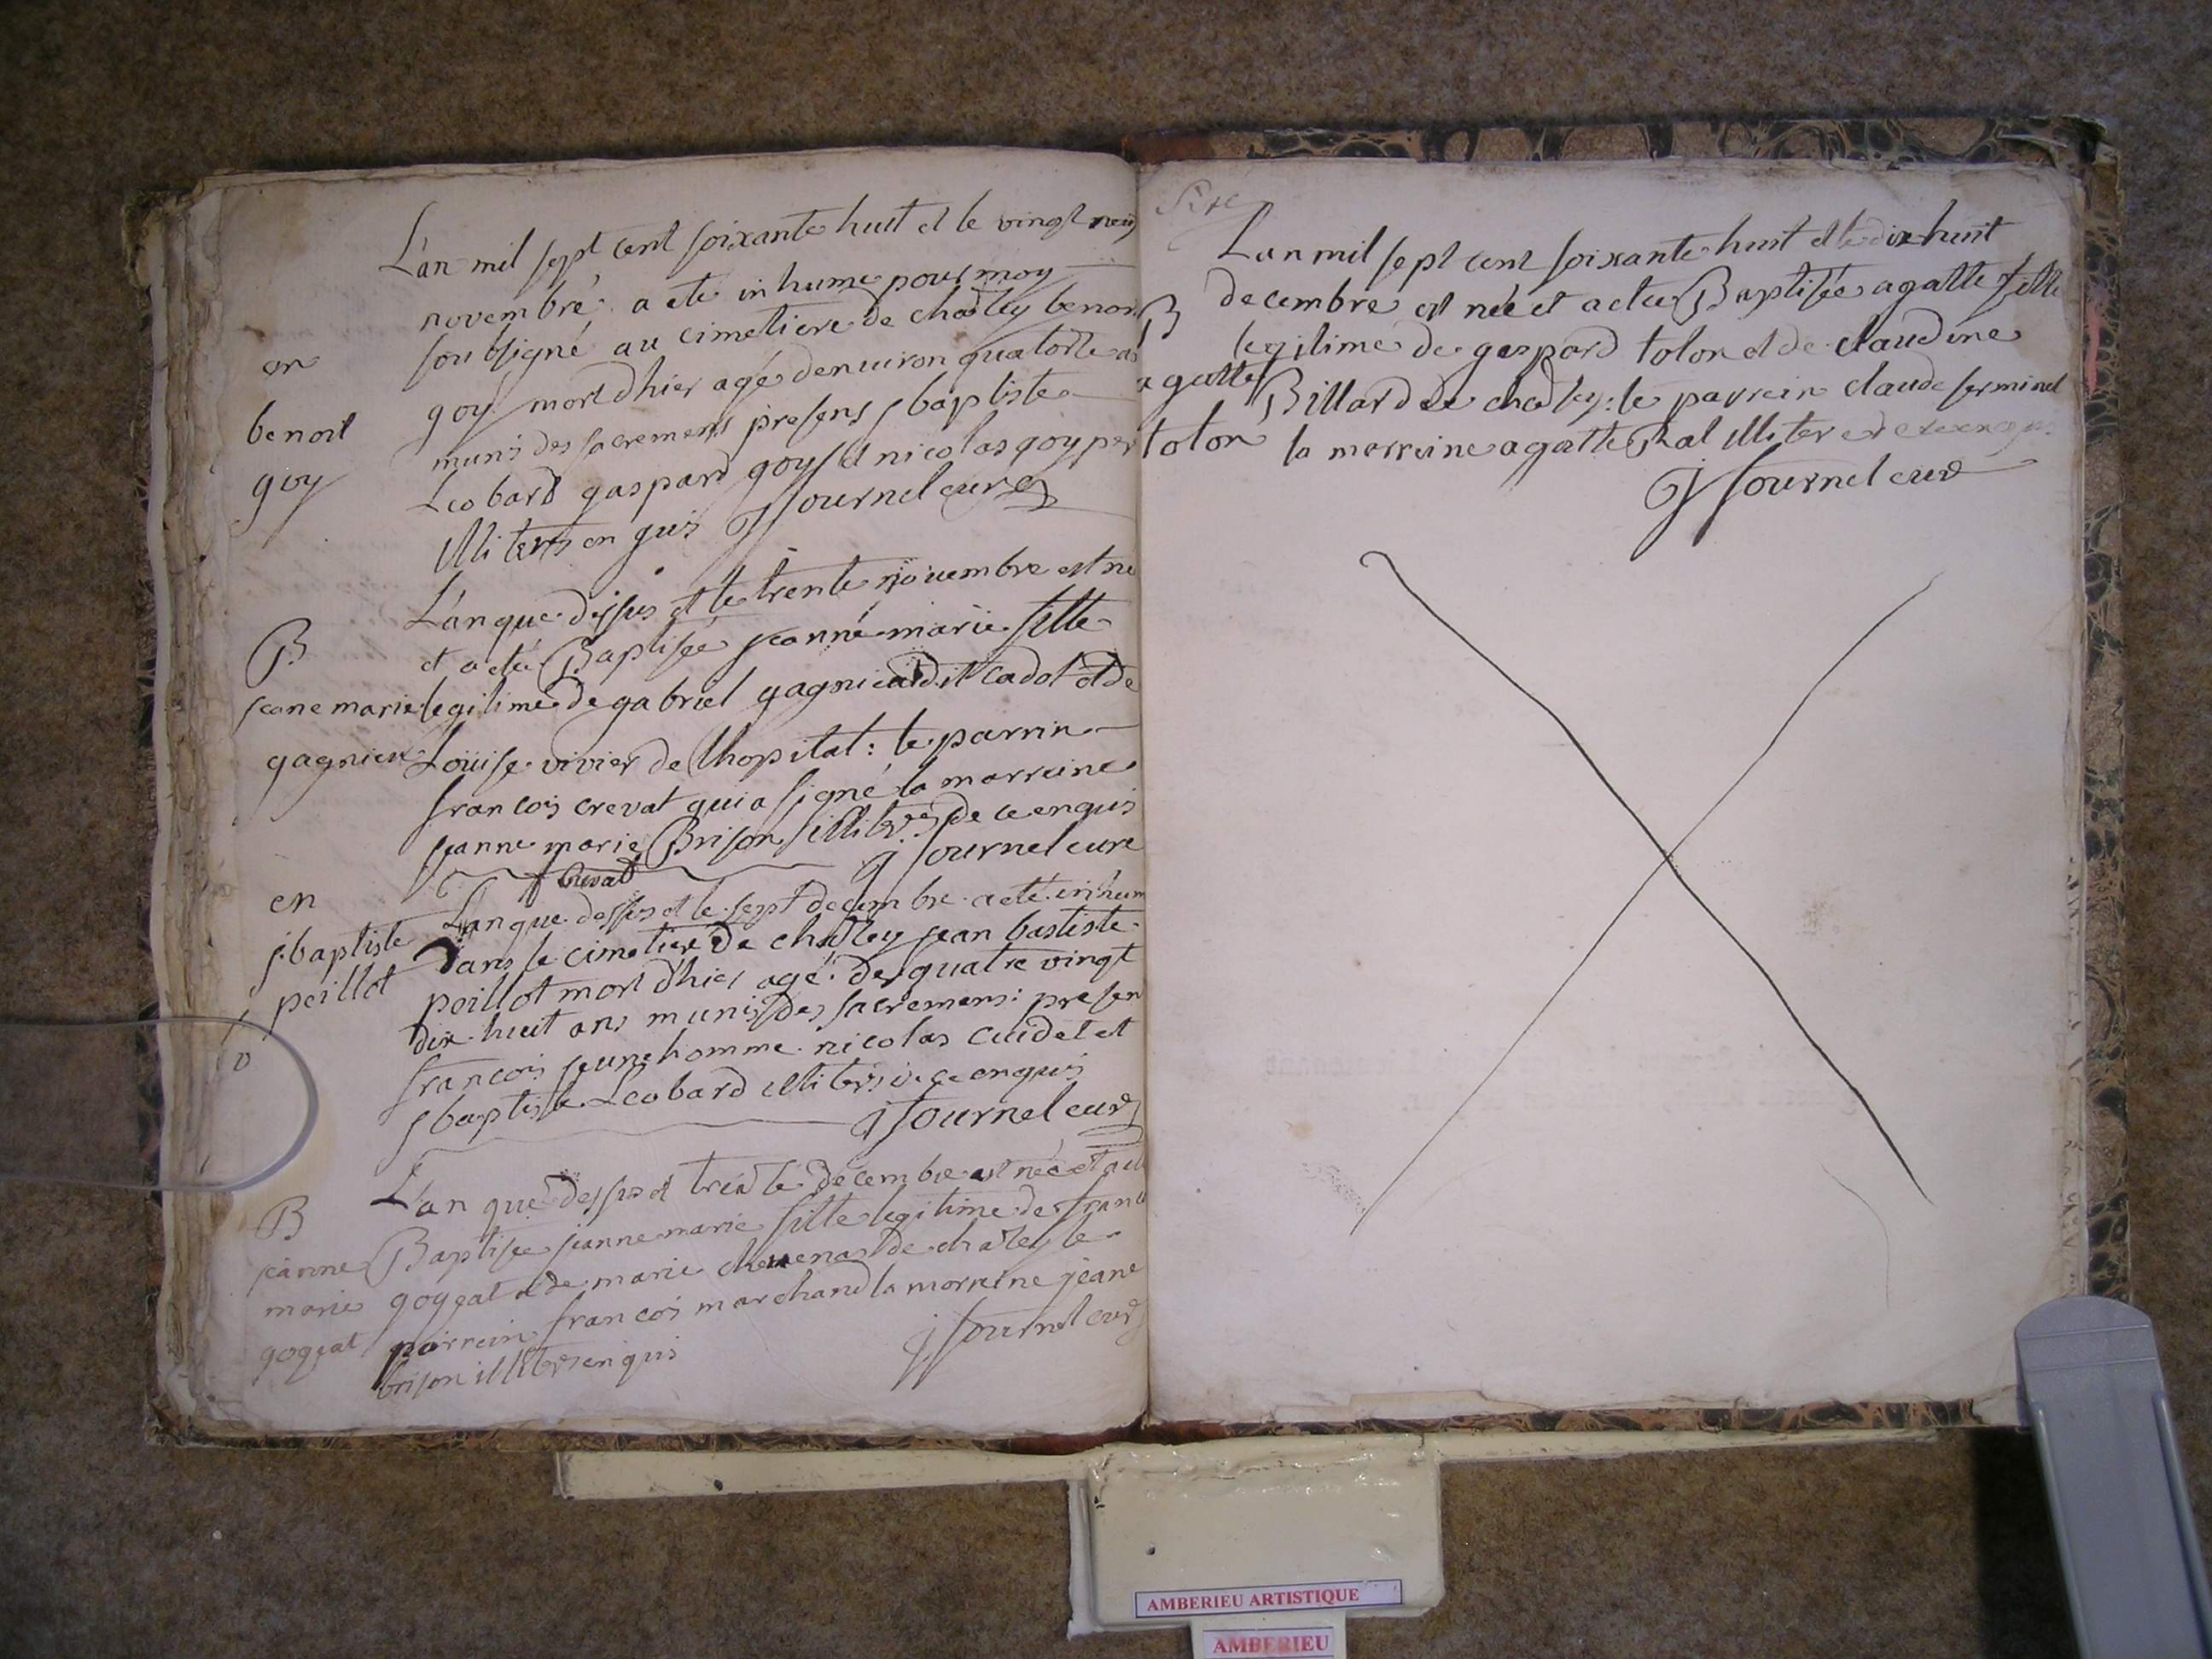 L'an mil sept cent soixante huit et le vingt neuf
novembre a ete inhume pour moy
soubsigné au cimetiere de chatley benoit
goy mort dhier agé denuiron quatorze ans
munis des sacremens presens j baptiste
Leobard gaspard goy et nicolas goy per
illiters en quis J Journel curé
en
benoit
goy
L'an que dessus et le trente novembre est né
et a eté Baptisée jeanne marie fille
legilime de gabriel gagnieu dit cadot et de
Louise vivier de lhopital : le parrin
francois crevat qui a signé la marreine
jeanne marie Brison illiters de ce enquis
J Journel cure
f Crevat
B
jeane marie
gagnieu
L'an que dessus et le sept decembre a eté inhum
dans le cimetiere de chatley jean bastiste
peillot mort dhier agé de quatre vingt
dix huit ans munis des sacremens : presen
francois jeune homme nicolas cuidet et
j baptiste Leobard illiters de ce enquis
J Journel curé
en
j baptiste
peillot
v
L'an que dessus et trente decembre est née et a eté
Baptisée jeanne marie fille legitime de franc
goyeat et de marie chevenas de chatley le
parrein francois marchand la marreine jeane
brison illiters enquis
j Journel curé
B
jeanne
marie
goyeat
L'an mil sept cent soixante huit et le dix huit
decembre est née et a etee Baptisée agatte fille
legilime de gaspard tolon et de claudine
Billard de chatley : le parrein claude ferminet
la marreine agatte Ral illiters de ce enquis
J Journel curé
B
agatte
tolon
AMBERIEU ARTISTIQUE
AMBERIEU